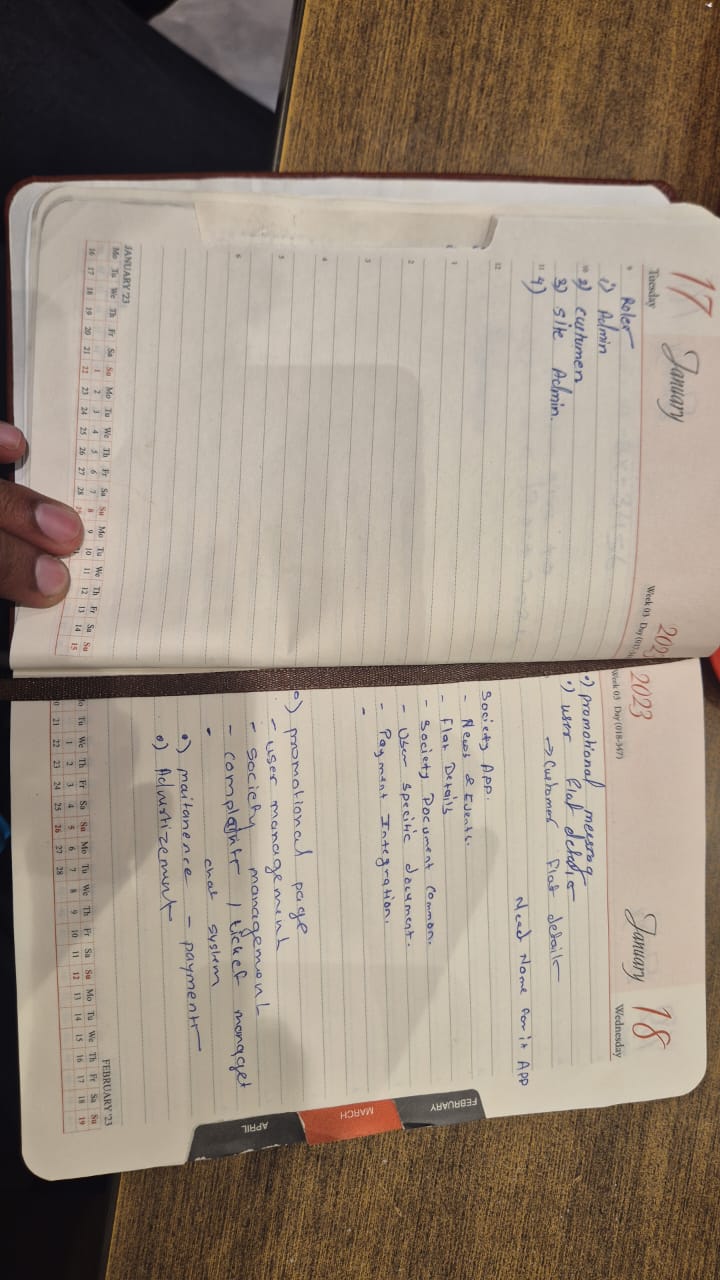 17
January
2023
Tuesday
Week 03 Day (017-
9
Roles
1) Admin
10 2) customen
3) site Admin.
11 4)
12
1
2
3
4
5
6
JANUARY '23
Mo Tu We Th Fr Sa Su Mo Tu We Th Fr Sa Su Mo Tu We Th Fr Sa Su
1 2 3 4 5 6 7 8 9 10 11 12 13 14 15
16 17 18 19 20 21 22 23 24 25 26 27 28
2023
January
18
Week 03 Day (018-347)
Wednesday
promotional
user flat details
→ Customer flat details
Need Name for it App
Society App.
- News & Events.
- Flat Details
- Society Document Common.
- User specific document.
- Payment Integration.
-
promotional page
- user management
- society management
- complaint / ticket managet
- chat system
maitanence - payment
Advertizement
FEBRUARY '23
Tu We Th Fr Sa Su Mo Tu We Th Fr Sa Su Mo Tu We Th Fr Sa Su
1 2 3 4 5 6 7 8 9 10 11 12 13 14 15 16 17 18 19
21 22 23 24 25 26 27 28
FEBRUARY
MARCH
APRIL